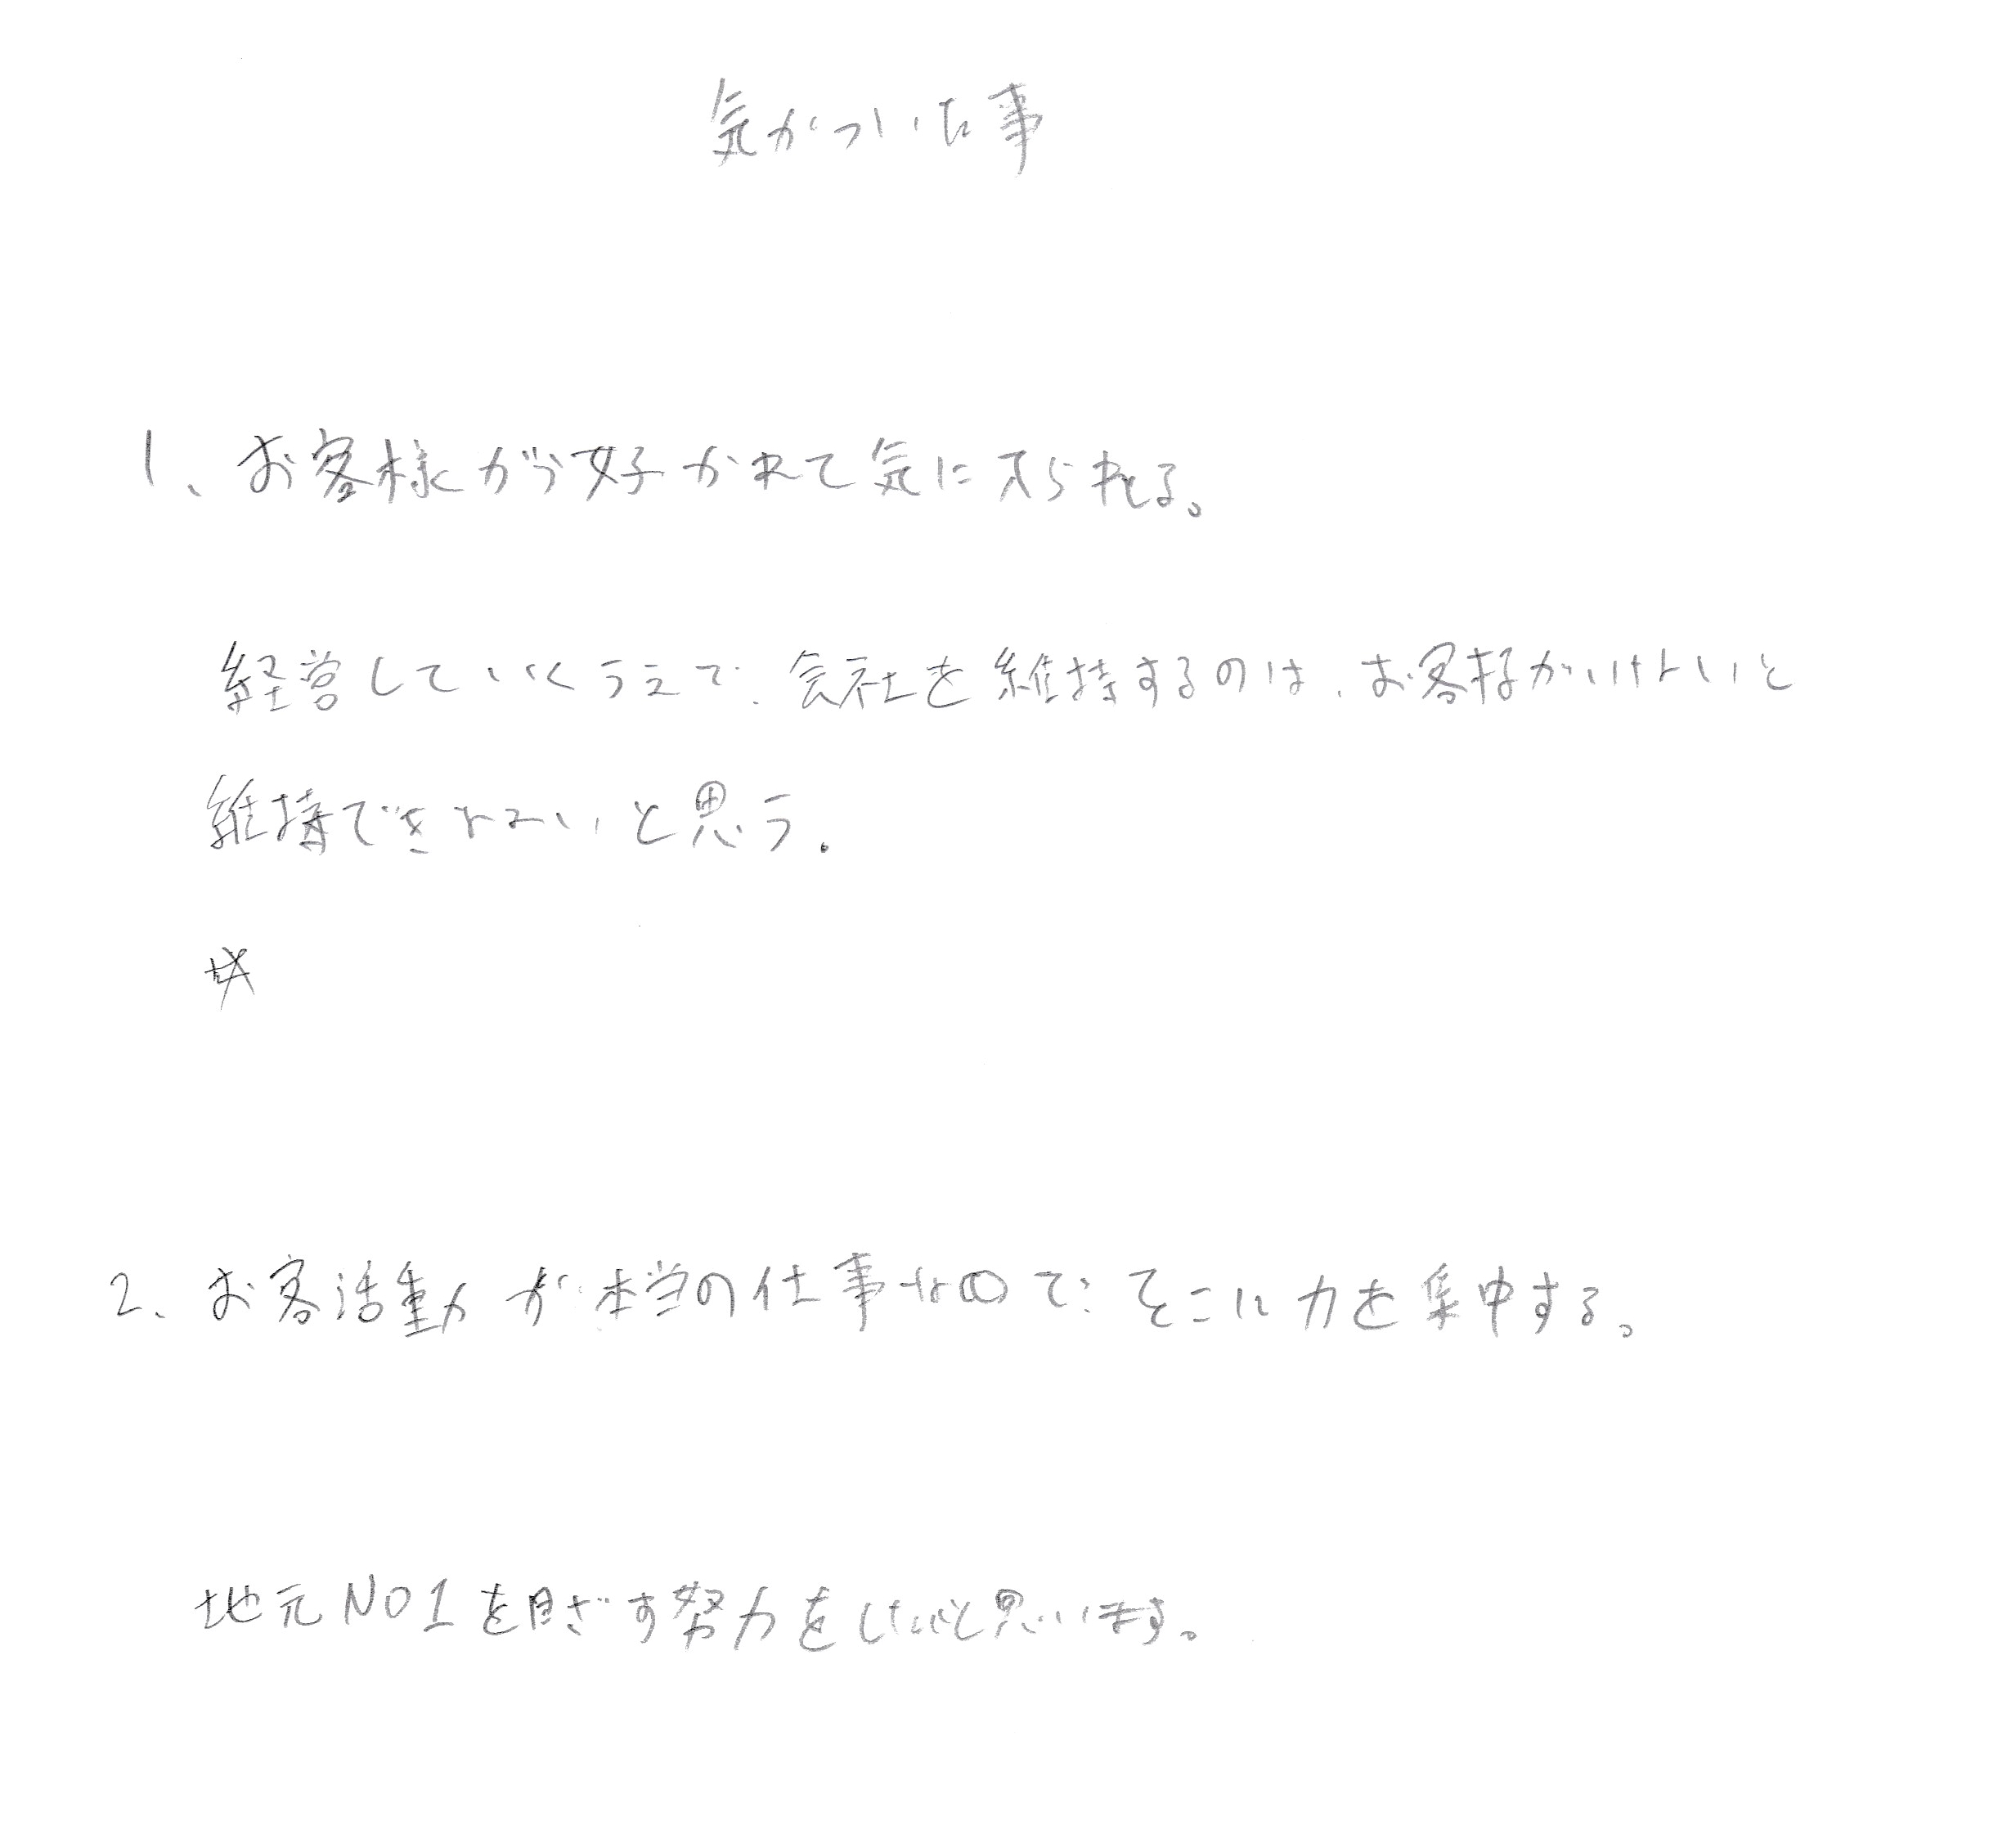 気がついた事
1、お客様から好かれて気に入られる。
経営していくうえで、会社を維持するのは、お客様がいけないと
維持できないと思う。
2、お客活動が本当の仕事なので、そこに力を集中する。
地元NO1を目ざす努力をしたいと思います。